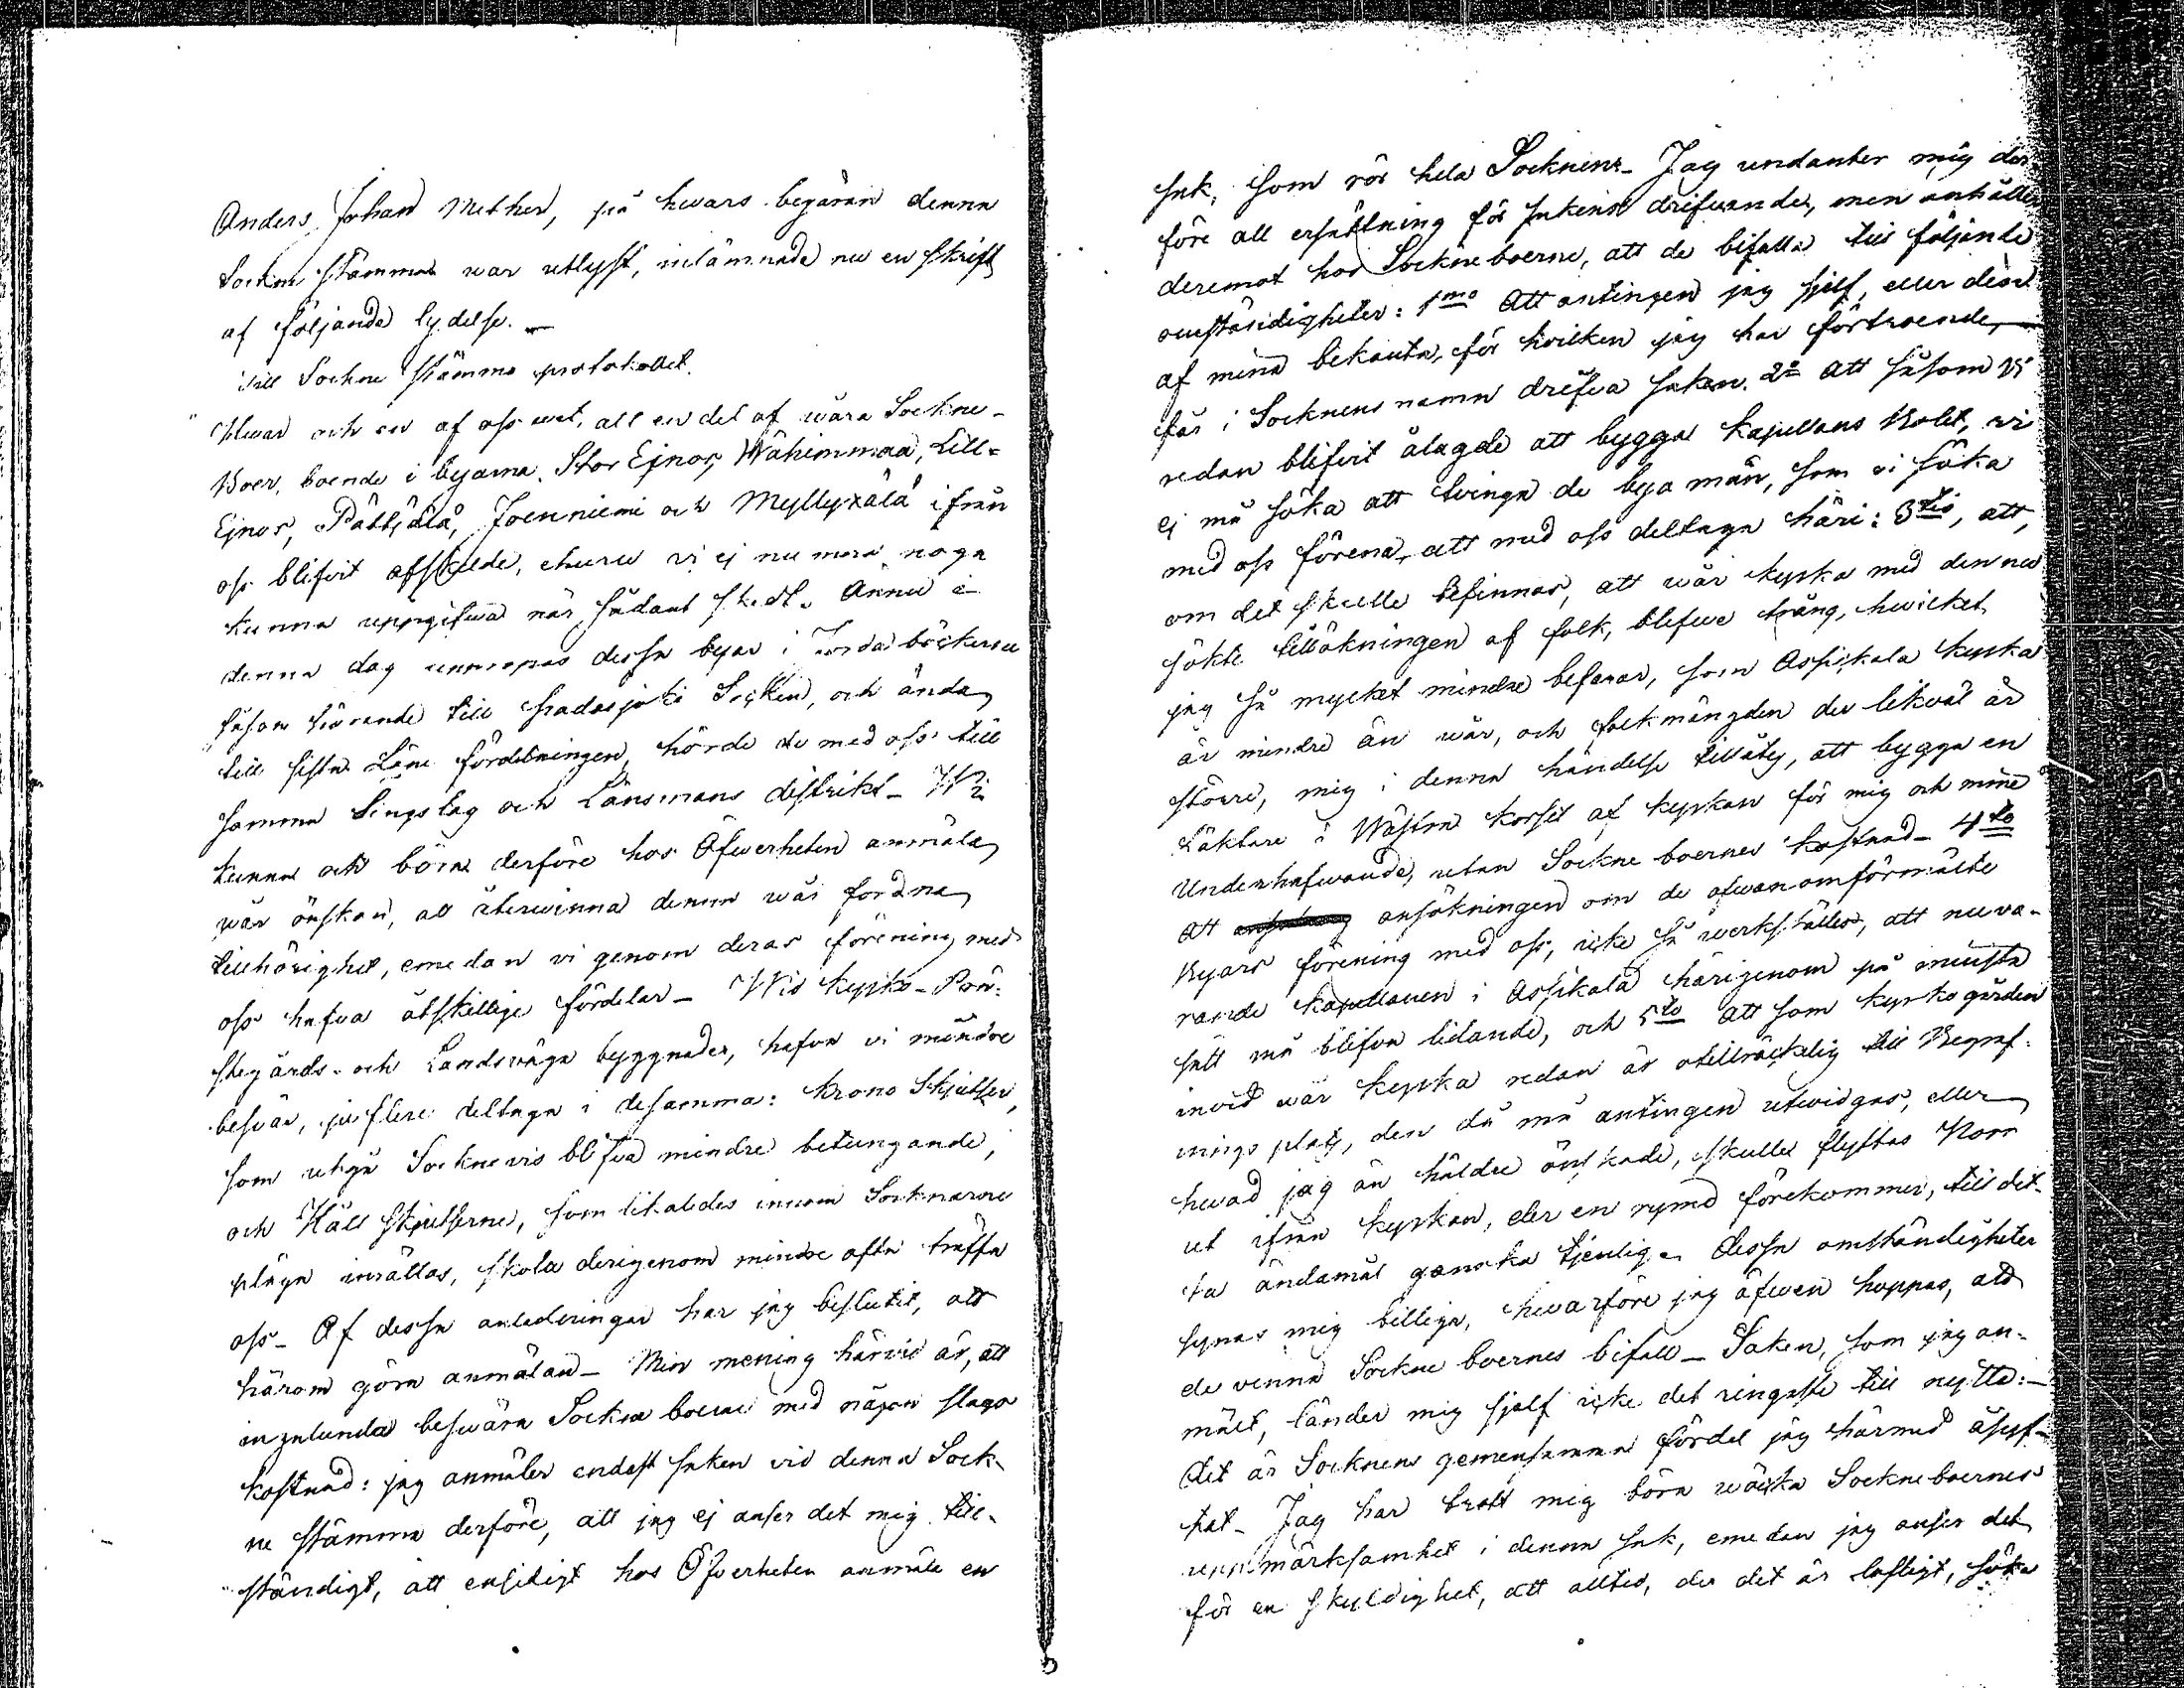 Anders Johan Mether, på hwars begäran denna
Sockne stämma war utlyst, inlämnade nu en skrift
af följande lydelse.
Till Sockne stämmo protokollet.
Hwar och en af oss wet, att en del af wåra Sockne-
Boer, boende i byarna Stor Ejnor, Wähimmaa, Lill-
Ejnor, Pätijälä, Joenniemi och Myllyxälä ifrån
oss blifvit afskilde, ehuru vi ej nu mera noga
kunna uppgifwa när sådant skedt. Ännu i
denna dag upptages dessa byar i Jorda böckerne
såsom hörande till Padasjoki Socken, och ända
till sista Läne fördelningen, hörde de med oss till
samma Tingslag och Länsmans distrikt - Wi
kunna och böra derföre hos Öfwerheten anmäla
wår önskan, att återwinna denna wår fordna
tillhörighet, emedan vi genom deras förening med
oss hafva åtskillige fördelar - Wid Kyrko- Pre-
stegårds- och Landsväga byggnader, hafva vi mindre
besvär, ju flere deltaga i desamma: Krono Skjutser,
som utgå Socknevis blifva mindre betungande,
och Håll skjutserne, som likaledes inom Socknarne
pläga inrättas, skola derigenom mindre ofta träffa
oss - Af dessa anledningar har jag beslutit, att
härom göra anmälan - Min mening härvid är, att
ingalunda beswära Sockne boerne med någon slags
kostnad: jag anmäler endast saken vid denna Sock-
ne stämma derföre, att jag ej anser det mig till-
ständigt, att ensidigt hos Öfverheten anmäla en
sak, som rör hela Socknen - Jag undanber mig der-
före all ersättning för sakens drifwande, men anhåller
deremot hos Sockneboerne, att de bifalla till följande
omständigheter: 1mo Att antingen jag sjelf, eller den
af mina bekanta, för hvilken jag har förtroende,
får i Socknens namn drifva saken. 2o Att såsom Vi
redan blifvit ålagde att bygga Kapellans Bolet, vi
ej må söka att tvinga de bya män, som vi söka
med oss förena, att med oss deltaga häri: 3tio, att,
om det skulle befinnas, att wår kyrka med den nu
sökte tillökningen af folk, blefwe trång, hwilket
jag så mycket mindre befarar, som Asikkala kyrka
är mindre än wår, och folkmängden der likväl är
större, mig i denna händelse tillåts, att bygga en
Läktare i Wästra korset af kyrkan för mig och mine
Underhafwande, utan Sockne boernes kostnad - 4to
Att ansökningen om de ofwanomförmälte
Byars förening med oss, icke så werkställes, att nuva-
rande Kapellanen i Asikkala härigenom på minsta
sätt må blifva lidande, och 5to Att som kyrkogården
invid wår kyrka redan är otillräckelig till Begraf-
nings plats, den då må antingen utwidgas, eller
hwad jag än häldre önskade, skulle flyttas Norr
ut ifrån kyrkan, der en rymd förekommer, till det-
ta ändamål ganska tjenlig. Dessa omständigheter
synas mig billiga, hwarföre jag äfwen hoppas, att
de vinna Sockne boernes bifall - Saken, som jag an-
mält, länder mig sjelf icke det ringaste till nytta:-
Det är Socknens gemensamma fördel jag härmed åsyf-
tat - Jag har trott mig böra wäcka Sockneboernes
uppmärksamhet i denna sak, emedan jag anser det
för en skyldighet, att alltid, der det är lofligt, söka